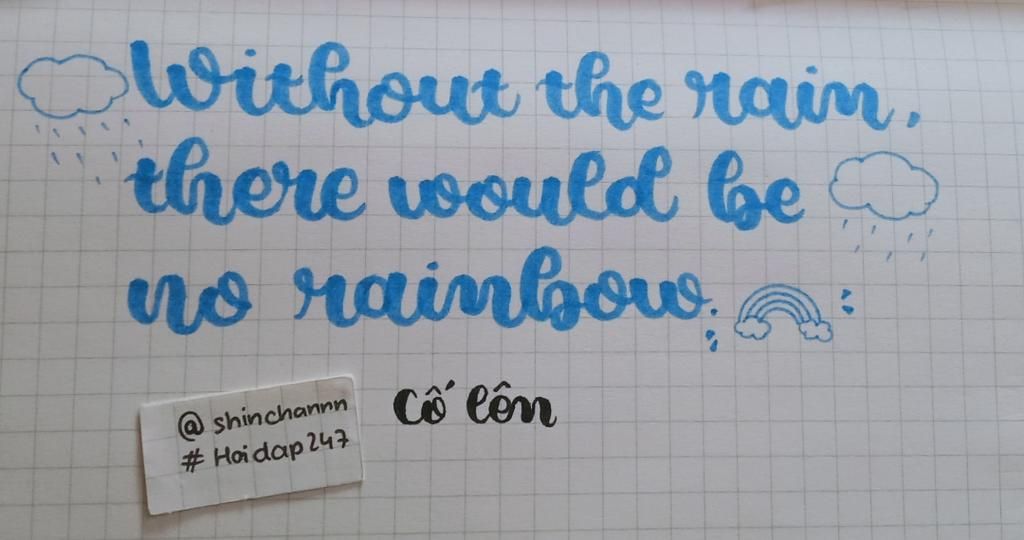 Without the rain,
there would be
no rainbow.
@ shinchannn
# Hoidap247
Cố lên